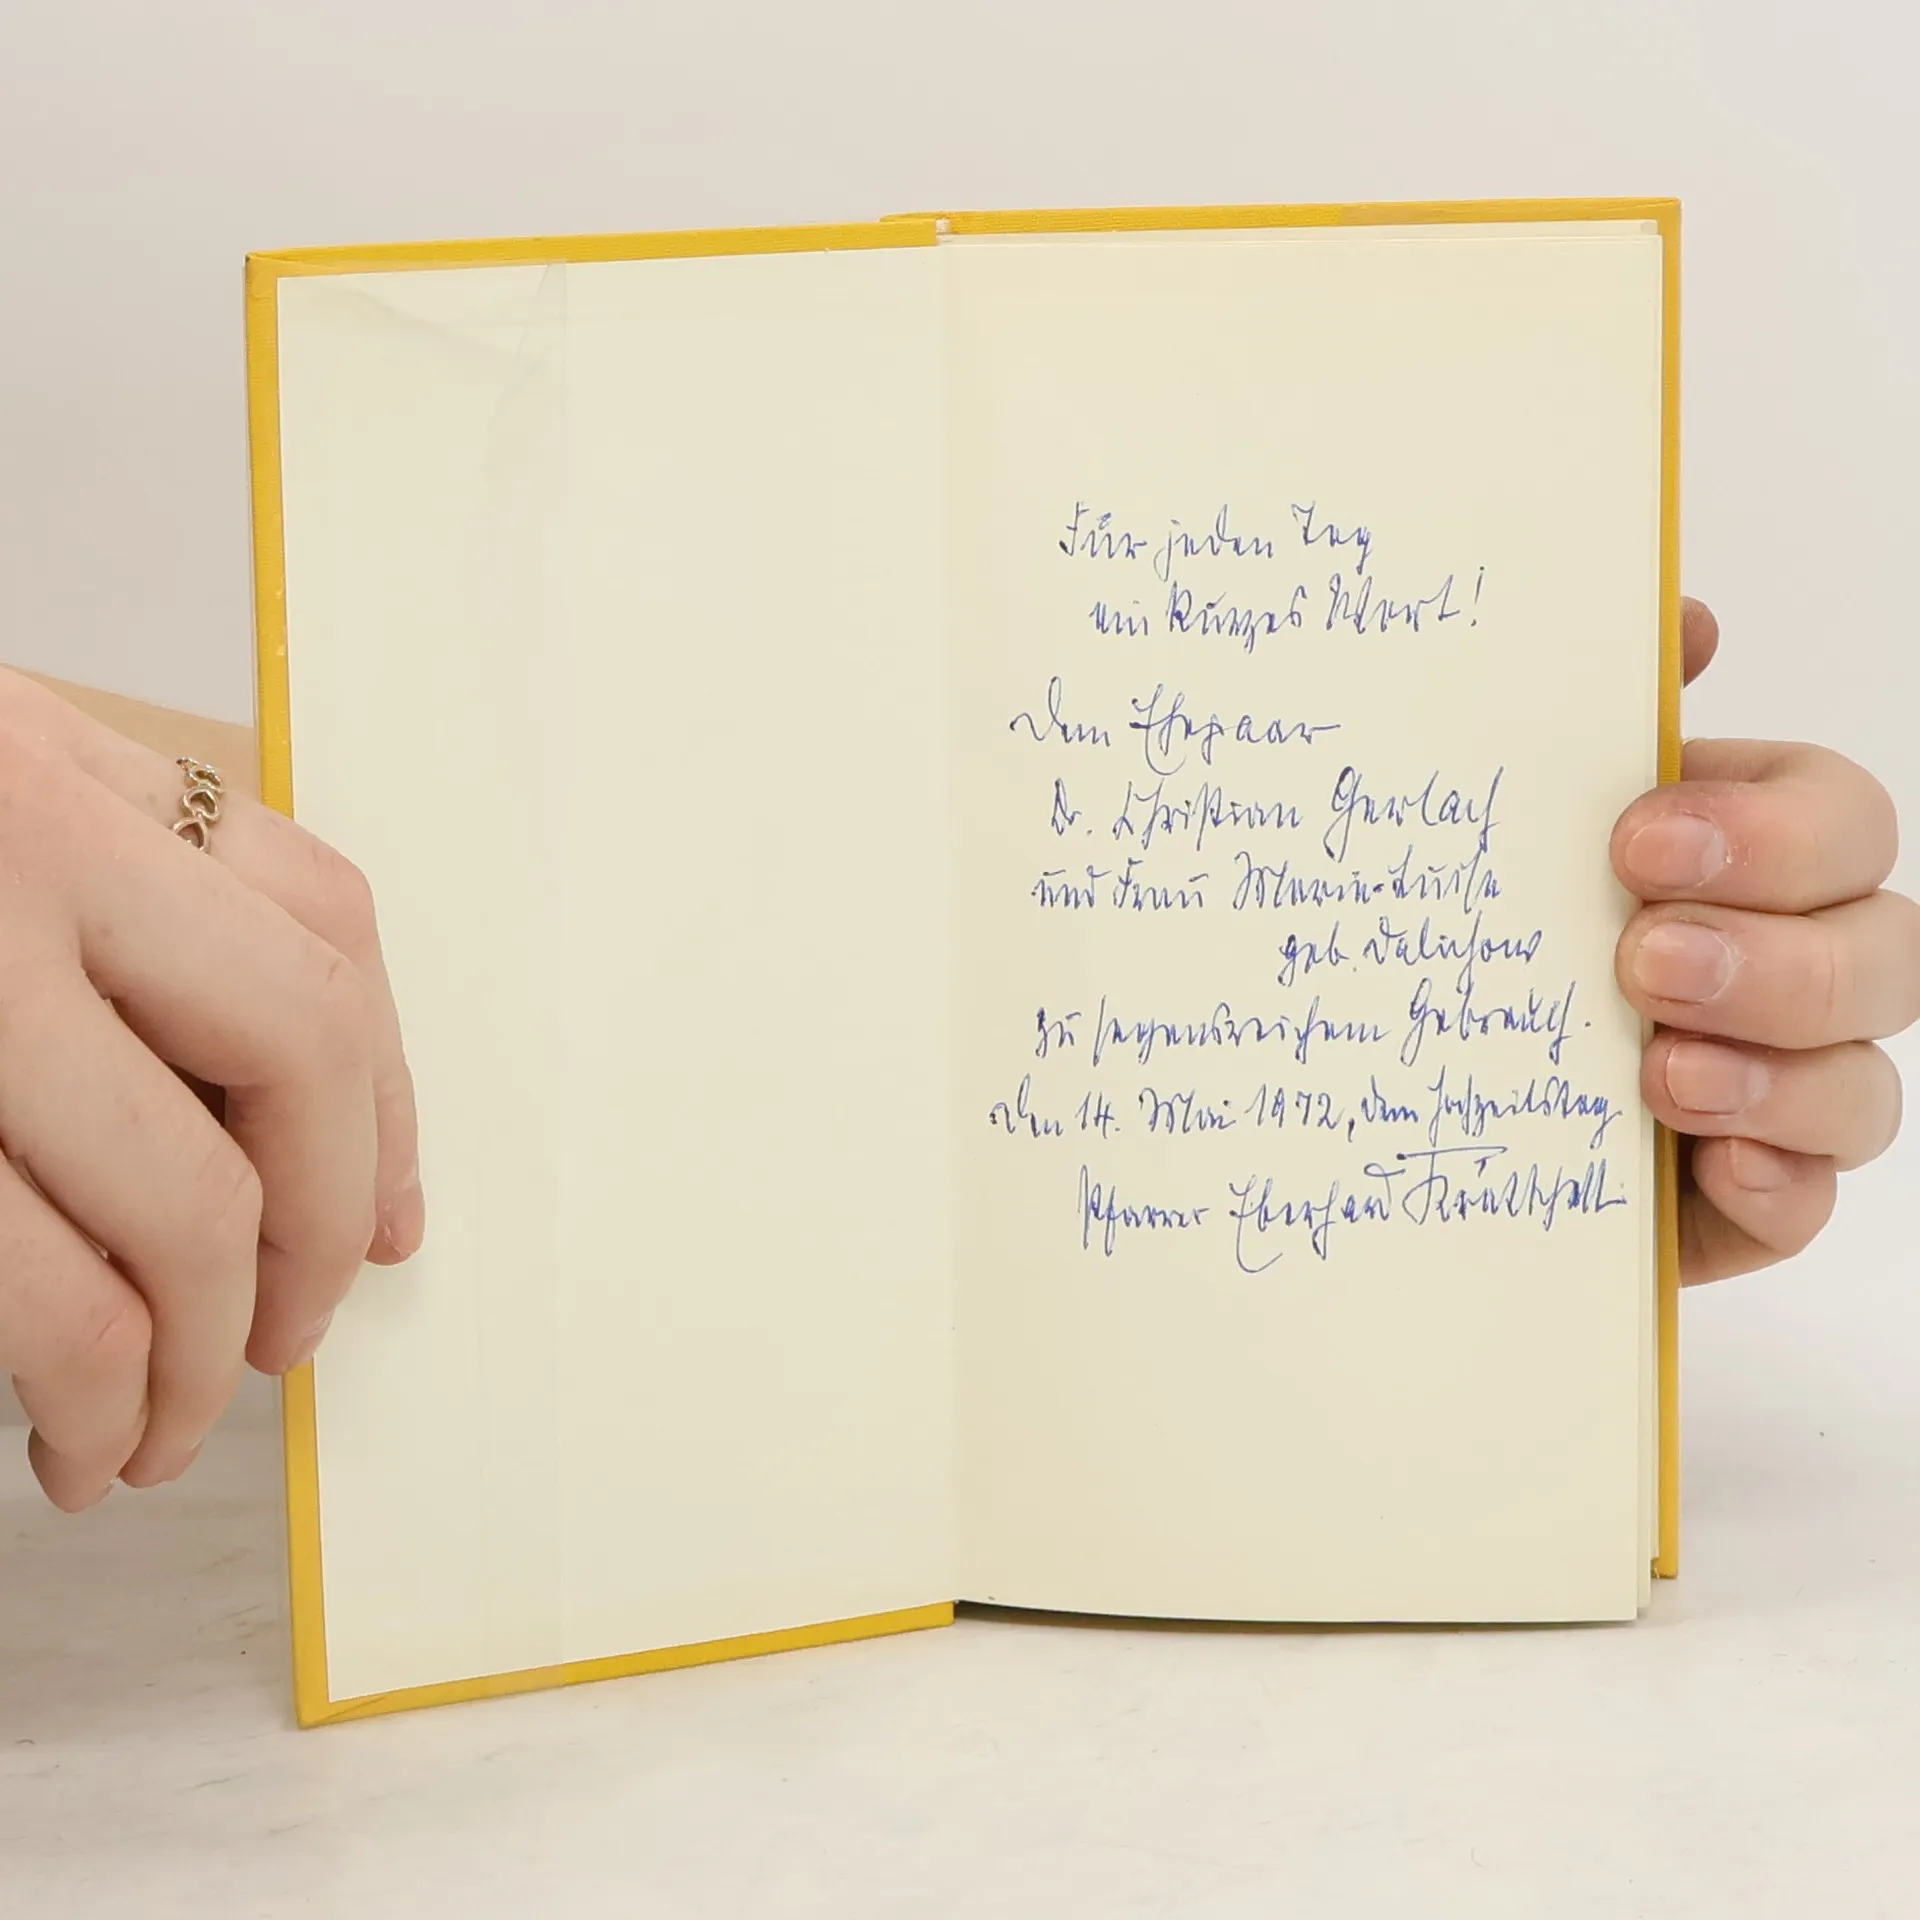 Für jeden Tag
ein kurzes Wort!
Dem Ehepaar
Dr. Christian Gerlach
und Frau Marie-Luise
geb. Dalichow
zu segensreichem Gebrauch.
Den 14. Mai 1972, dem Hochzeitstag
Pfarrer Eberhard